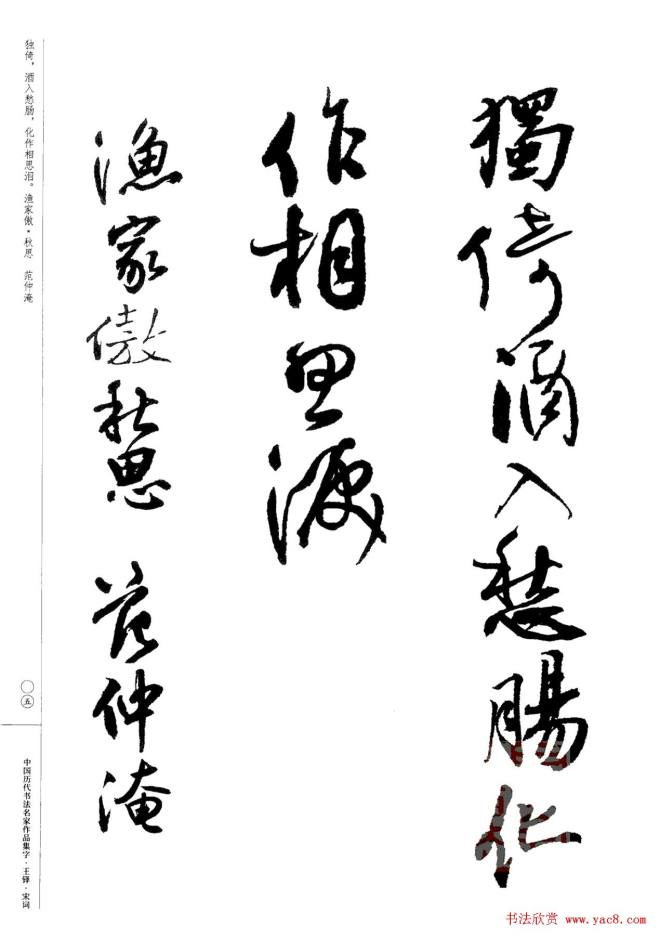 獨倚酒入愁腸化
作相思淚
漁家傲秋思 范仲淹
独倚，酒入愁肠，化作相思泪。渔家傲·秋思 范仲淹
〇五
中国历代书法名家作品集字·王铎·宋词
书法欣赏 www.yac8.com